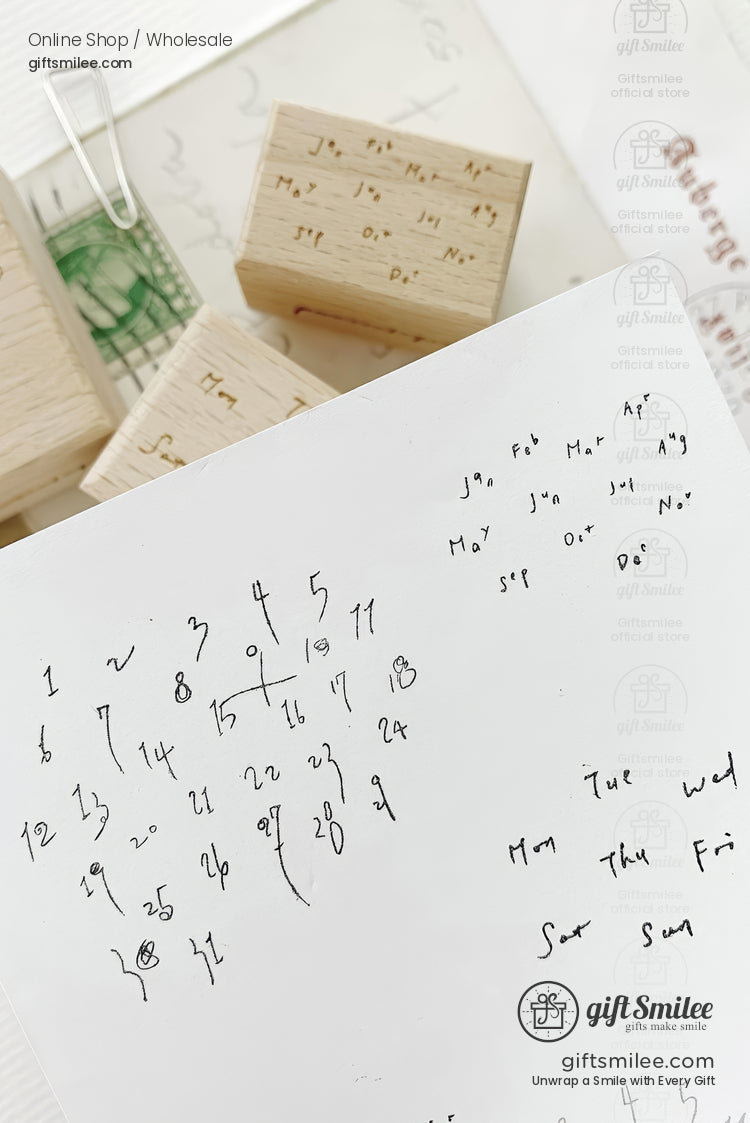 Online Shop / Wholesale
giftsmilee.com
gift Smilee
Giftsmilee
official store
gift Smilee
Giftsmilee
official store
gift Smilee
Giftsmilee
official store
gift Smilee
Giftsmilee
official store
gift Smilee
Giftsmilee
official store
gift Smilee
Giftsmilee
official store
Auberge
Jan Feb Mar Apr
May Jun Jul Aug
Sep Oct Nov
Dec
Mon
Jan Feb Mar Apr
May Jun Jul Aug
Sep Oct Nov
Dec
1 2 3 4 5
6 7 8 9 10 11
12 13 14 15 16 17 18
19 20 21 22 23 24
25 26 27 28 29
30 31
Tue Wed
Mon Thu Fri
Sat Sun
gift Smilee
gifts make smile
giftsmilee.com
Unwrap a Smile with Every Gift
4 5